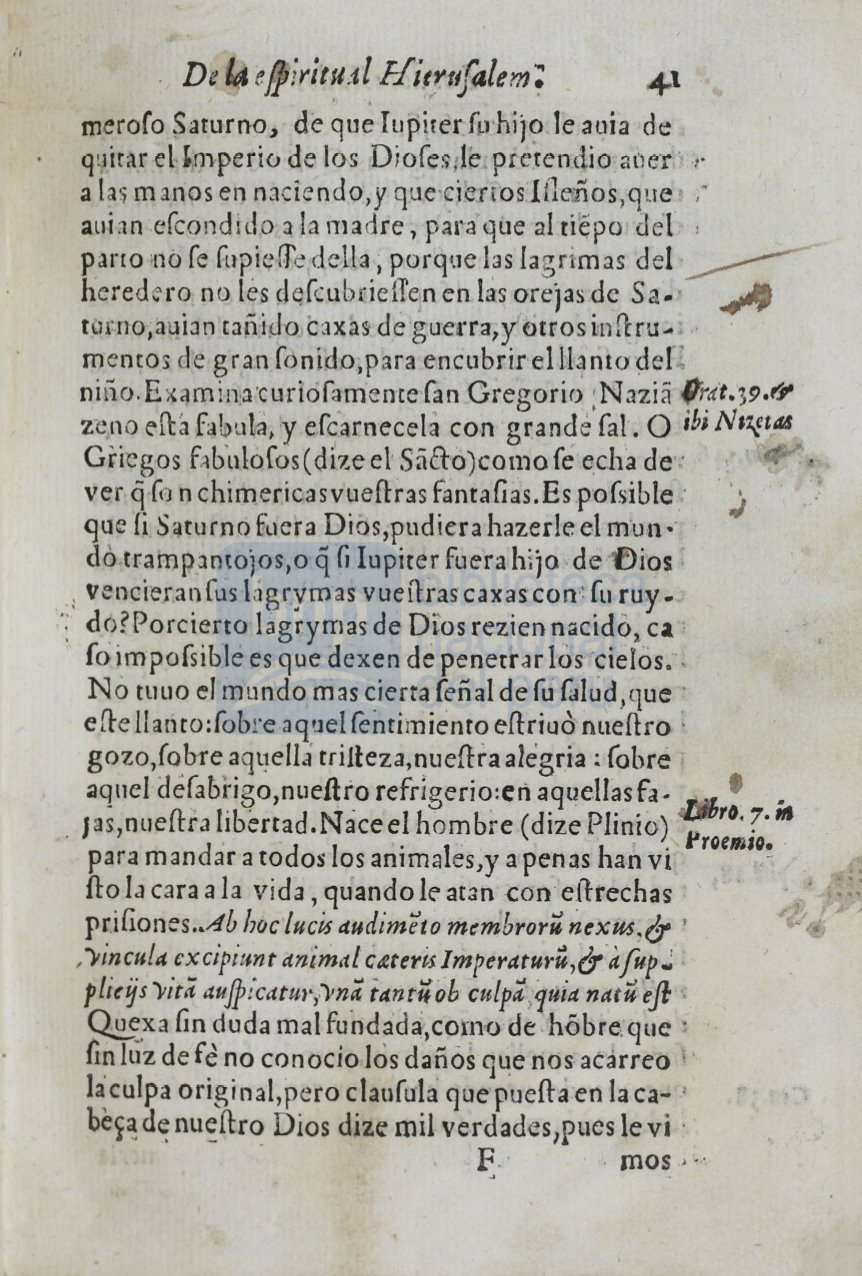 De la eſpiritual Hieruſalem. 41
meroſo Saturno, de que Iupiter ſu hijo le auia de
quitar el Imperio de los Dioſes, le pretendio auer
a las manos en naciendo, y que ciertos Iſleños, que
auian eſcondido a la madre, para que al tiẽpo del
parto no ſe ſupieſſe della, porque las lagrimas del
heredero no les deſcubrieſſen en las orejas de Sa-
turno, auian tañido caxas de guerra, y otros inſtru-
mentos de gran ſonido, para encubrir el llanto del
niño. Examina curioſamente ſan Gregorio Naziã
Orat. 39. &
zeno eſta fabula, y eſcarnecela con grande ſal. O
ibi Nizetas
Griegos fabuloſos (dize el Sãcto) como ſe echa de
ver q̃ ſon chimericas vueſtras fantaſias. Es poſsible
que ſi Saturno fuera Dios, pudiera hazerle el mun-
do trampantojos, o q̃ ſi Iupiter fuera hijo de Dios
vencieran ſus lagrymas vueſtras caxas con ſu ruy-
do? Por cierto lagrymas de Dios rezien nacido, ca
ſo impoſsible es que dexen de penetrar los cielos.
No tuuo el mundo mas cierta ſeñal de ſu ſalud, que
eſte llanto: ſobre aquel ſentimiento eſtriuò nueſtro
gozo, ſobre aquella triſteza, nueſtra alegria: ſobre
aquel deſabrigo, nueſtro refrigerio: en aquellas fa-
jas, nueſtra libertad. Nace el hombre (dize Plinio)
Libro. 7. in
Proemio.
para mandar a todos los animales, y apenas han vi
ſto la cara a la vida, quando le atan con eſtrechas
priſiones. Ab hoc lucis audimẽto membrorũ nexus, &
vincula excipiunt animal cæteris Imperaturũ, & à ſup-
plicijs vitã auſpicatur, vnã tantũ ob culpã quia natũ eſt
Quexa ſin duda mal fundada, como de hõbre que
ſin luz de fè no conocio los daños que nos acarreo
la culpa original, pero clauſula que pueſta en la ca-
beça de nueſtro Dios dize mil verdades, pues le vi
F mos